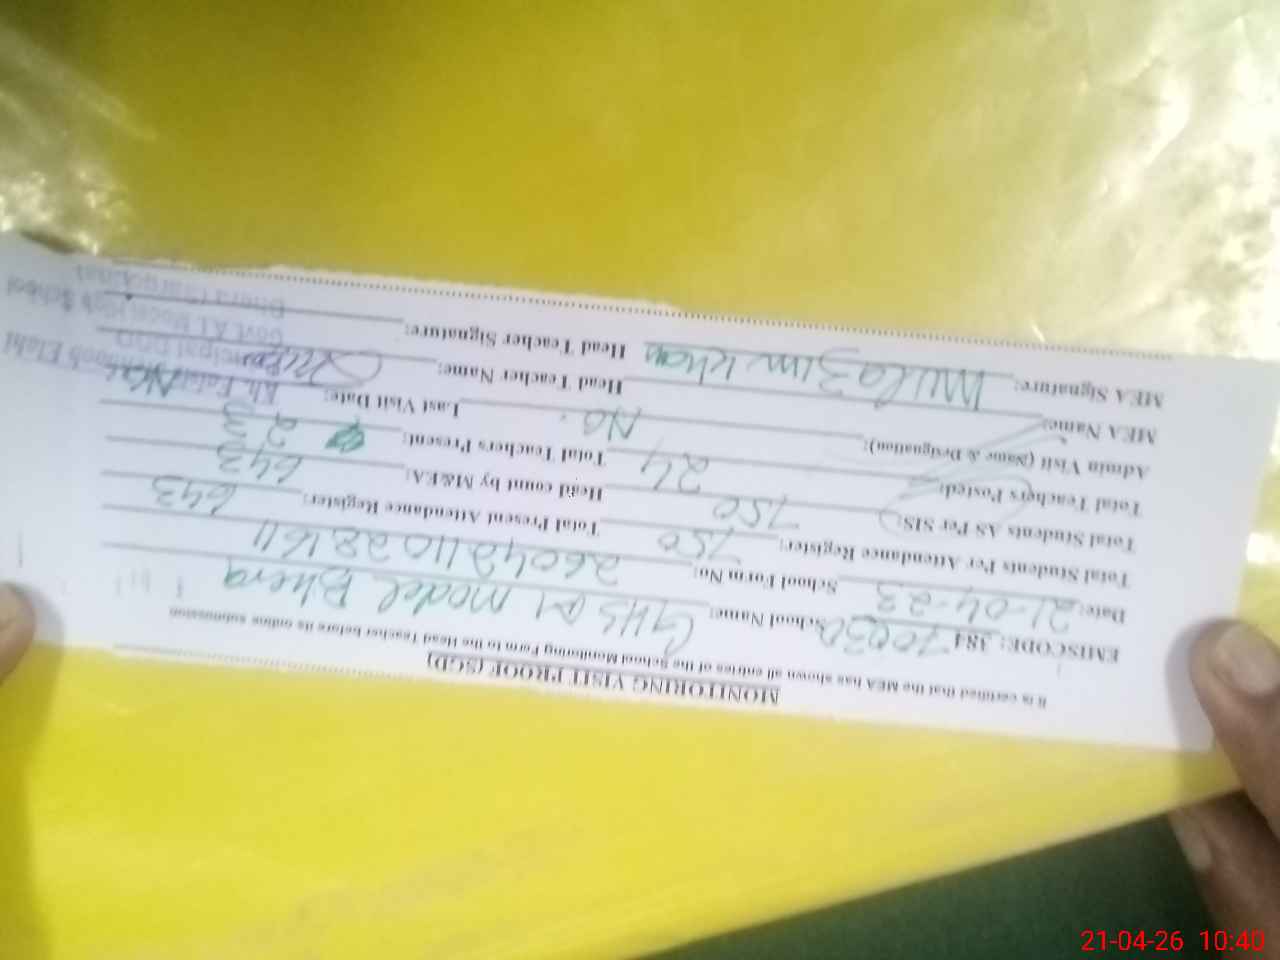 MONITORING VISIT PROOF (SGD)
It is certified that the MEA has shown all entries of the School Monitoring Form to the Head Teacher before its online submission
EMISCODE: 38470030 School Name: GHS Al model Bhera
Date: 21-04-23 School Form No: 26042110281611
Total Students Per Attendance Register: 750 Total Present Attendance Register: 643
Total Students AS Per SIS: 750 Head count by M&EA: 643
Total Teachers Posted: 24 Total Teachers Present: 23
Admin Visit (Name & Designation): No Last Visit Date: No
MEA Name: Head Teacher Name:
MEA Signature: Mulazim Khan Head Teacher Signature:
Principal
Govt. Al Model High School
Bhera (Sargodha)
21-04-26 10:40